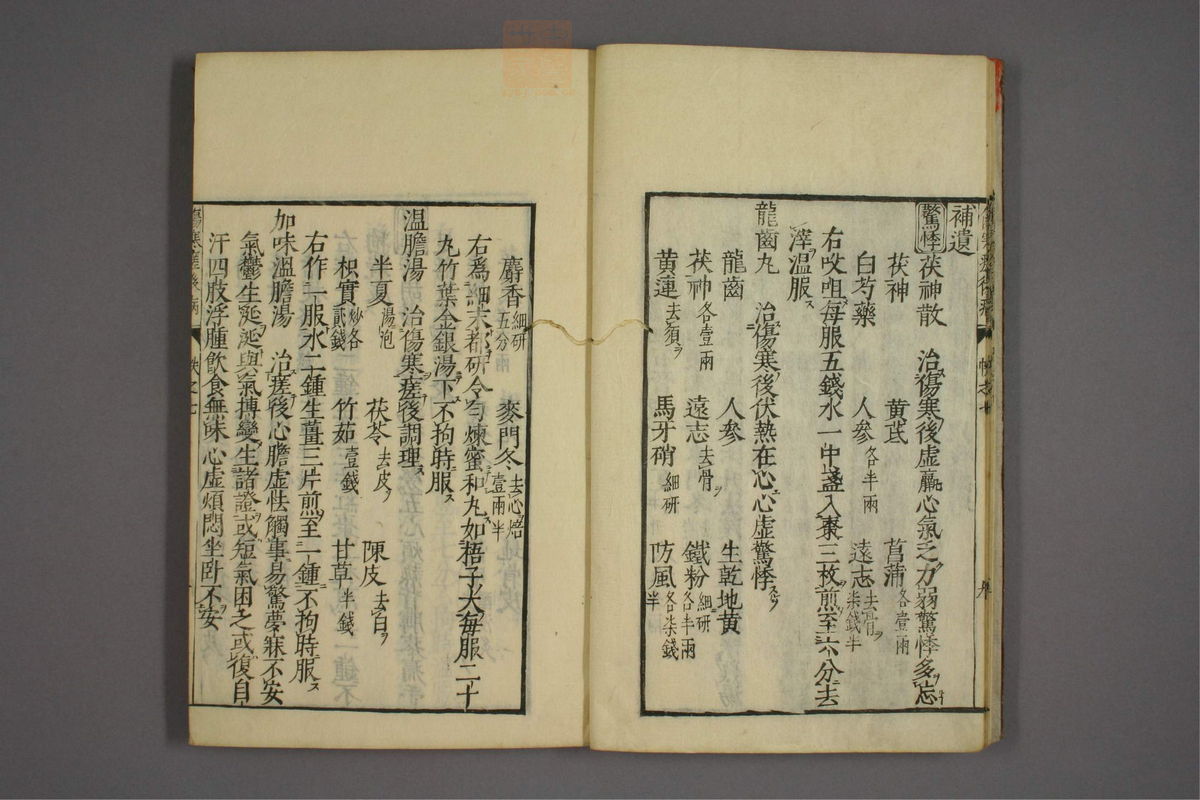 補遺
驚悸 茯神散 治傷寒後虛羸心氣乏力弱驚悸多忘
茯神 黄芪 菖蒲各壹兩
白芍藥 人參各半兩 遠志去骨柒錢半
右㕮咀每服五錢水一中盞入棗三枚煎至六分去
滓溫服
龍齒丸 治傷寒後伏熱在心心虛驚悸
龍齒 人參 生乾地黄
茯神各壹兩 遠志去骨 鐵粉細研各半兩
黄連去須 馬牙硝細研 防風各柒錢半
麝香細研五分 麥門冬去心焙壹兩半
右爲細末都研令勻煉蜜和丸如梧子大每服二十
九竹葉金銀湯下不拘時服
溫膽湯 治傷寒瘥後調理
半夏湯泡 茯苓去皮 陳皮去白
枳實炒各貳錢 竹茹壹錢 甘草半錢
右作一服水二鍾生薑三片煎至一鍾不拘時服
加味溫膽湯 治瘥後心膽虛怯觸事易驚夢寐不安
氣鬱生涎涎與氣搏變生諸證或短氣困乏或復自
汗四肢浮腫飲食無味心虛煩悶坐卧不安